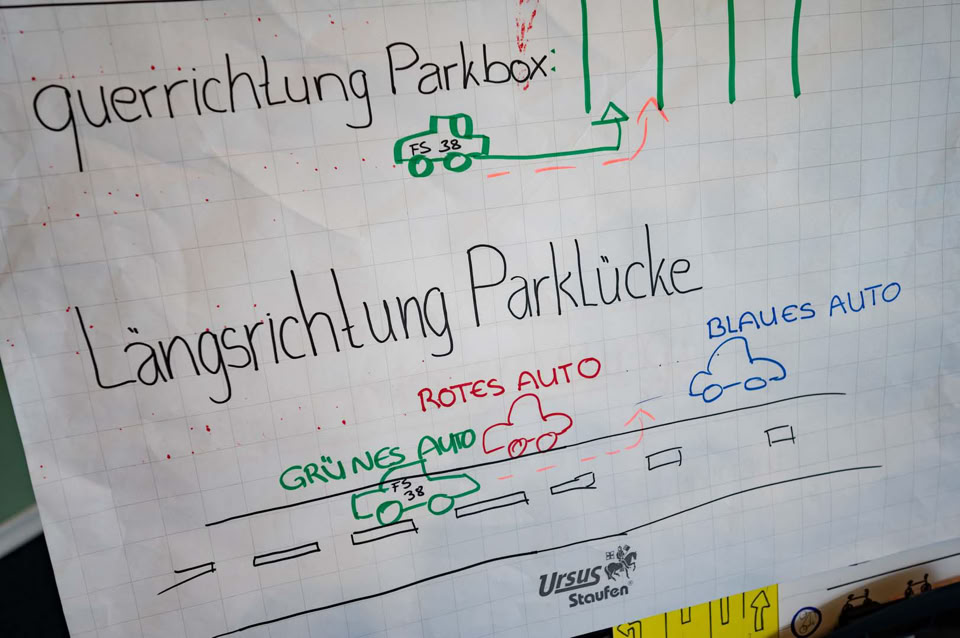 querrichtung Parkbox:
FS 38
Längsrichtung Parklücke
BLAUES AUTO
ROTES AUTO
GRÜNES AUTO
FS
38
Ursus
Staufen